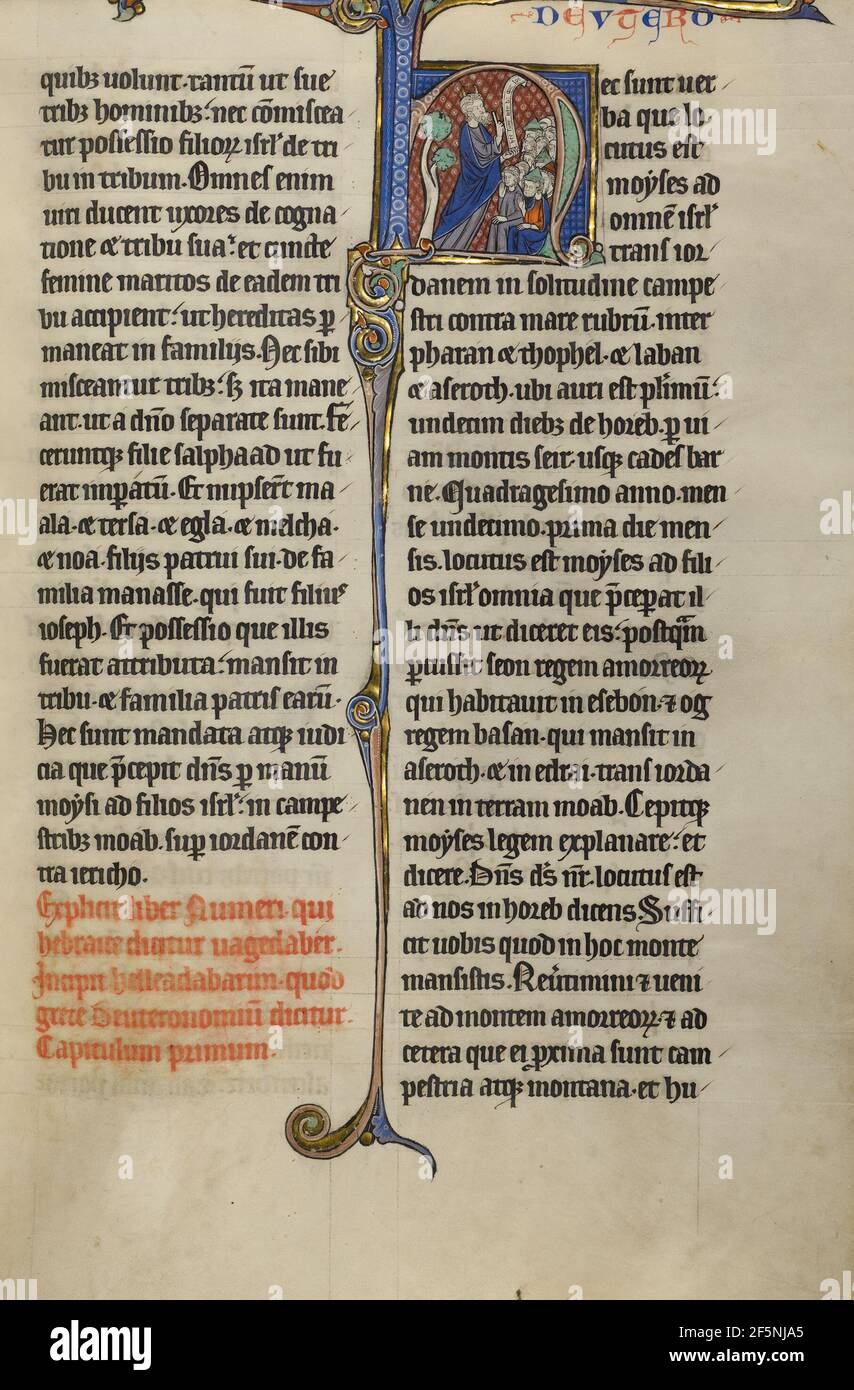 DEUTERO
quibȝ uolunt. tantū ut sue
tribȝ hominibȝ. nec cōmiscea
tur possessio filioꝝ isrl̓ de tri
bu in tribum. Omnes enim
uiri ducent uxores de cogna
tione ⁊ tribu sua. et cuncte
femine maritos de eadem tri
bu accipient. ut hereditas ꝑ
maneat in familijs. Nec sibi
misceantur tribȝ. sȝ ita mane
ant. ut a dn̄o separate sunt. Fe
ceruntqȝ filie salphaad ut fu
erat imꝑatū. Et nupser̄t ma
ala. ⁊ tersa. ⁊ egla. ⁊ melcha.
⁊ noa. filijs patrui sui. de fa
milia manasse. qui fuit filiuꝰ
ioseph. Et possessio que illis
fuerat attributa. mansit in
tribu. ⁊ familia patris earū.
Hec sunt mandata atqȝ iudi
cia que p̄cepit dn̄s ꝑ manū
moysi ad filios isrl̓. in campe
stribȝ moab. suꝑ iordanē con
tra iericho.
Explicit liber Numeri. qui
hebraice dicitur uagedaber.
Incipit helleadabarim. quod
grece Deuteronomiū dicitur.
Capitulum primum.
ec sunt uer
ba que lo
cutus est
moyses ad
omnē isrl̓
trans ior
danem in solitudine campe
stri contra mare rubrū. inter
pharan ⁊ thophel. ⁊ laban
⁊ aseroth. ubi auri est pl̓imū.
undecim diebȝ de horeb. ꝑ ui
am montis seir. usqȝ cades bar
ne. Quadragesimo anno. men
se undecimo. prima die men
sis. locutus est moyses ad fili
os isrl̓ omnia que p̄ceꝑat il
li dn̄s ut diceret eis. postq̄m
ꝑcussit seon regem amorreoꝝ
qui habitauit in esebon. ⁊ og
regem basan. qui mansit in
aseroth. ⁊ in edrai. trans iorda
nen in terram moab. Cepitqȝ
moyses legem explanare. et
dicere. Dn̄s ds̄ nr̄. locutus est
ad nos in horeb dicens. Suffi
cit uobis quod in hoc monte
mansistis. Reu̓timini ⁊ ueni
te ad montem amorreoꝝ. ⁊ ad
cetera que ei ꝓxima sunt cam
pestria atqȝ montana. et hu
alamy
Image ID: 2F5NJA5
www.alamy.com